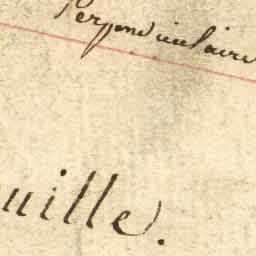 Perpendiculaire
uille.